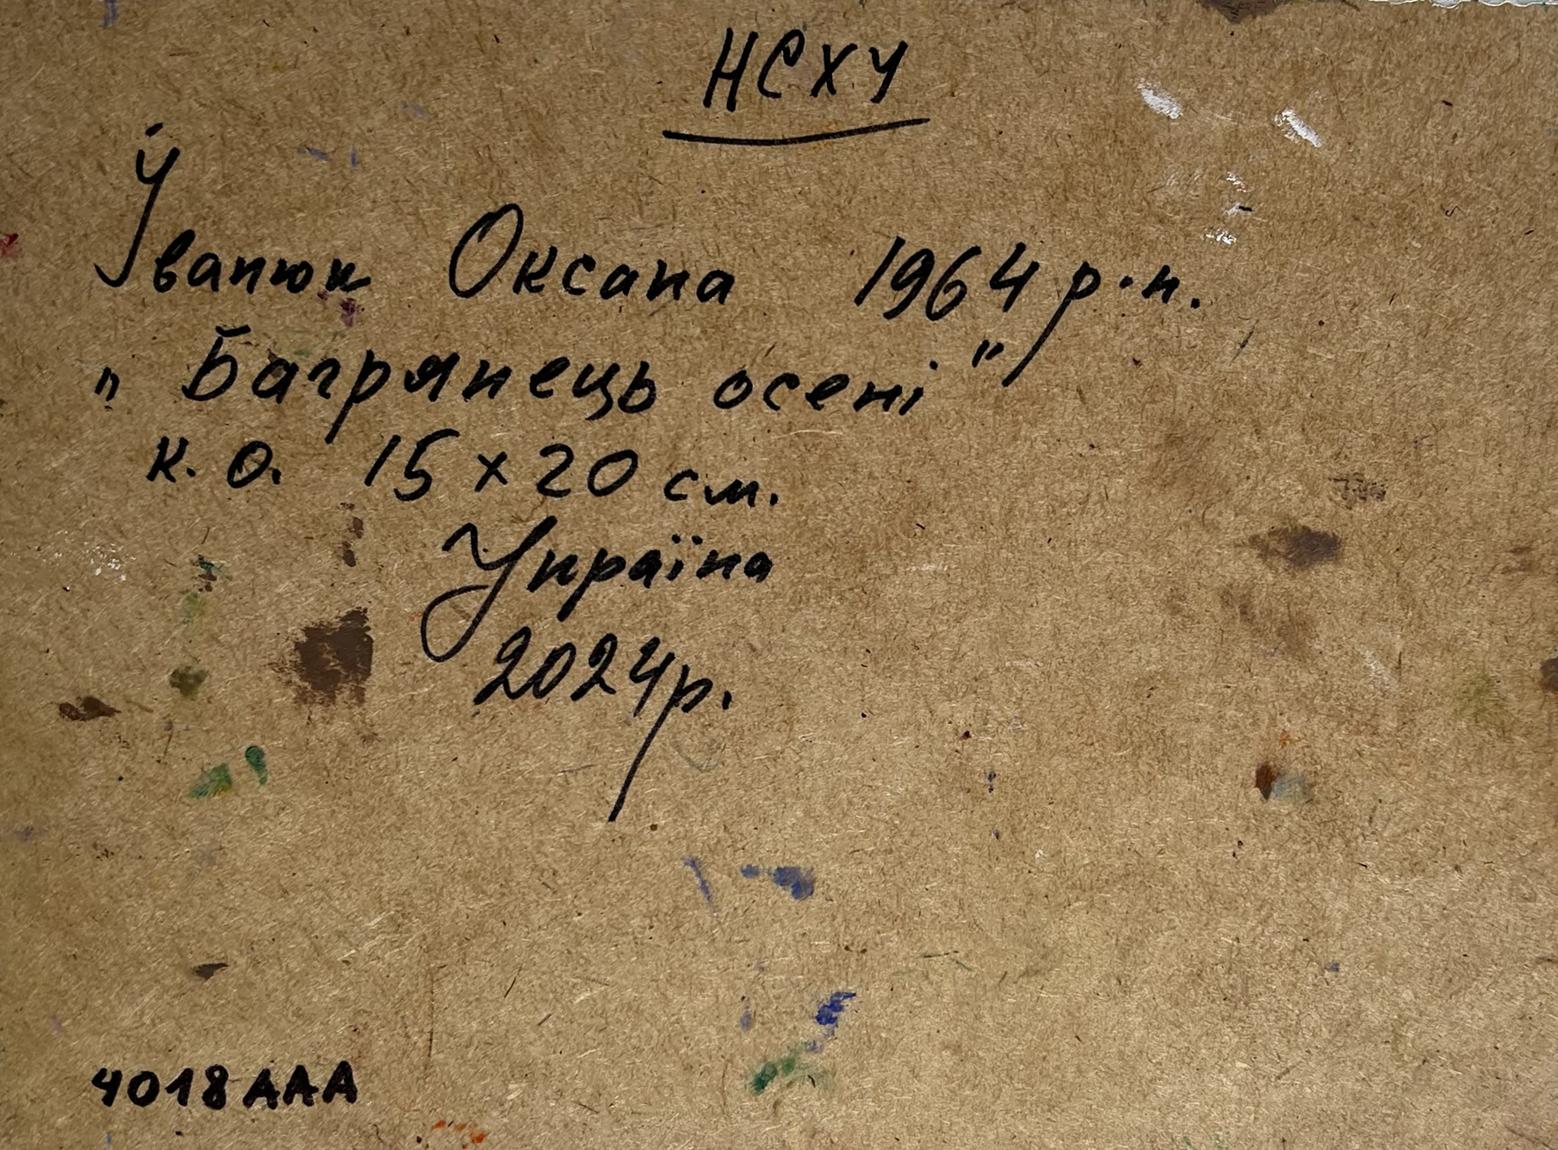 НСХУ
Іванюк Оксана 1964 р.н.
„Багрянець осені"
к.о. 15 x 20 см.
Україна
2024р.
4018 ААА